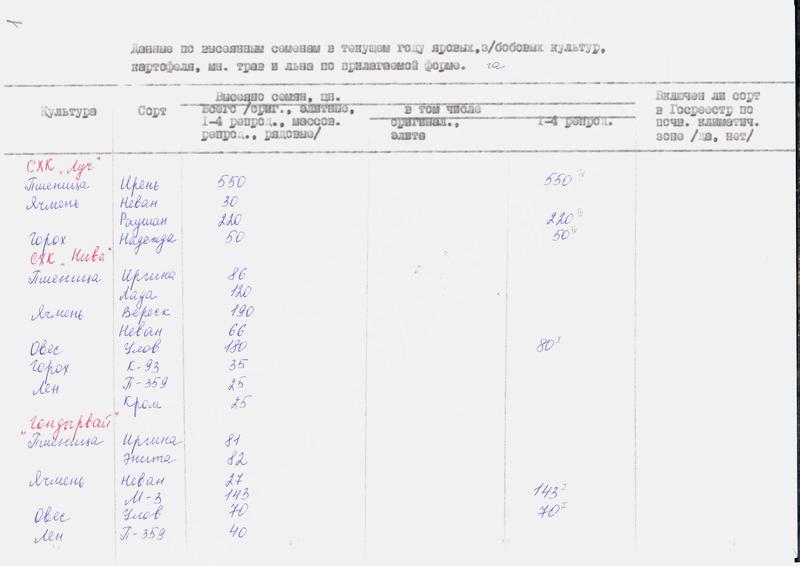 1
Данные по высеянным семенам в текущем году яровых, з/бобовых культур,
картофеля, мн. трав и льна по прилагаемой форме. га
Культура Сорт Высеяно семян, цн. Включен ли сорт
всего /ориг., элитные, в том числе в Госреестр по
1-4 репрод., массов. оригинал., 1-4 репрод. почв. климатич.
репрод., рядовые/ элита зоне /да, нет/
СХК "Луч"
Пшеница Ирень 550 550 IV
Ячмень Неван 30
Раушан 220 220 III
Горох Надежда 50 50 IV
СХК "Нива"
Пшеница Иргина 86
Лада 120
Ячмень Вереск 190
Неван 66
Овес Улов 180 80 I
Горох К-93 35
Лен П-359 25
Кром 25
"Гондырвай"
Пшеница Иргина 81
Энита 82
Ячмень Неван 27
М-3 143 143 I
Овес Улов 70 70 I
Лен П-359 40